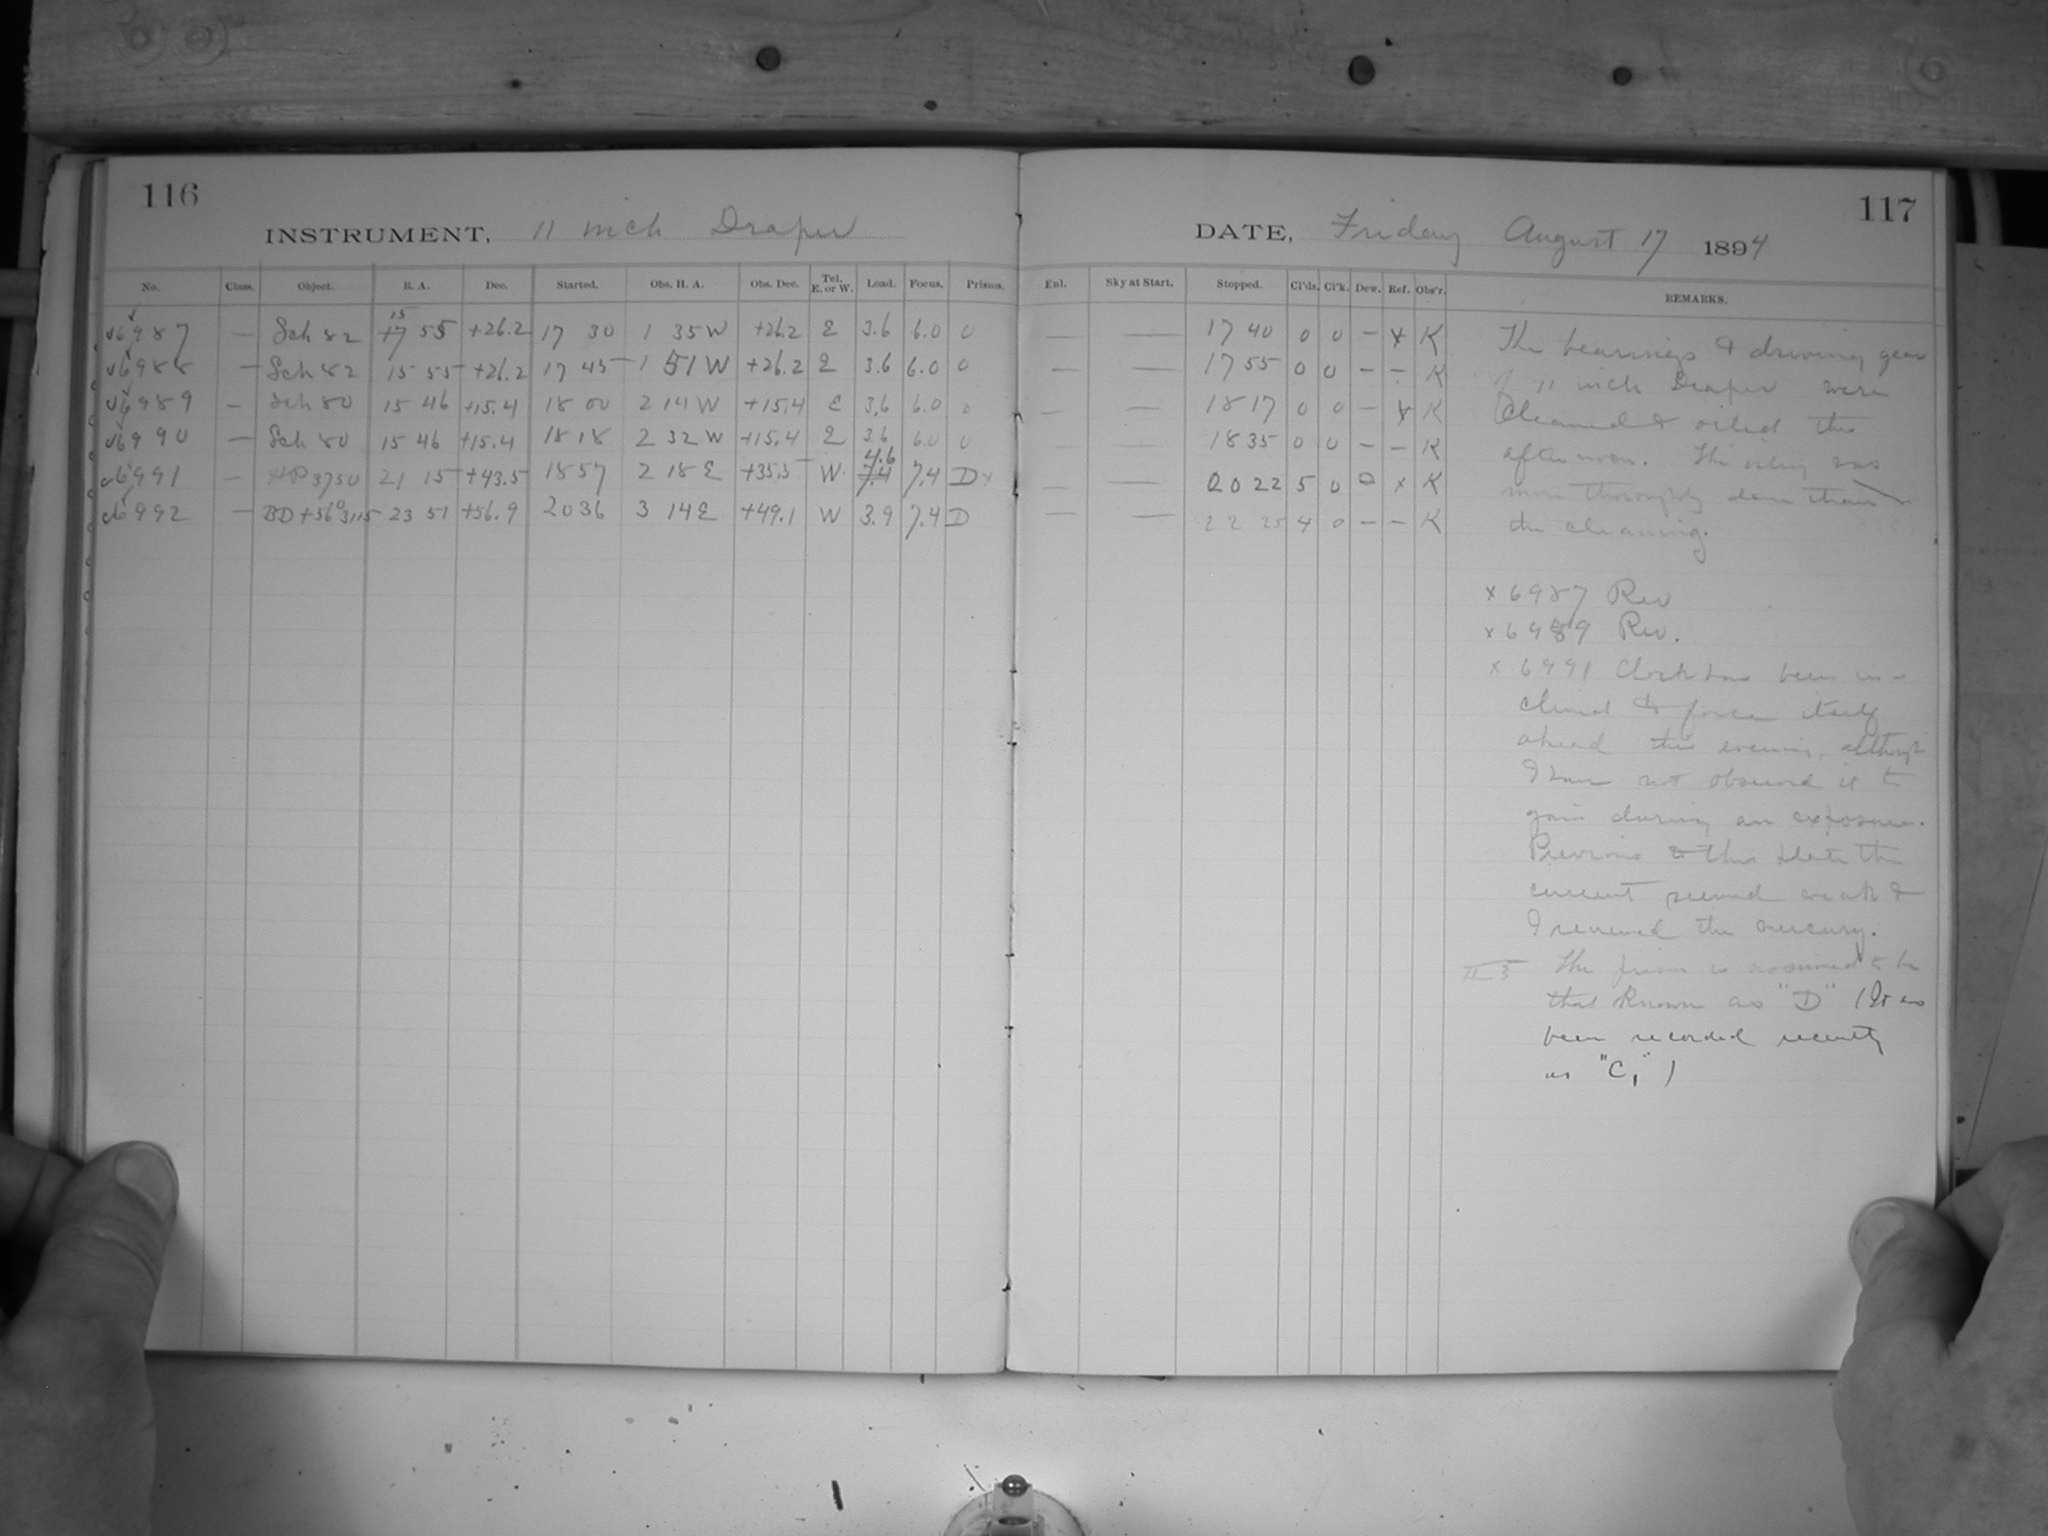 116
INSTRUMENT, 11 inch Draper
No. Class. Object. R. A. Dec. Started. Obs. H. A. Obs. Dec. Tel. E. or W. Load. Focus. Prisms.
6987 — Sch 82 15 17 55 +26.2 17 30 1 35 W +26.2 E 3.6 6.0 0
6988 — Sch 82 15 55 +26.2 17 45 1 51 W +26.2 E 3.6 6.0 0
6989 — Sch 80 15 46 +15.4 18 00 2 14 W +15.4 E 3.6 6.0 0
6990 — Sch 80 15 46 +15.4 18 18 2 32 W +15.4 E 3.6 6.0 0
6991 — HP 3750 21 15 +43.5 18 57 2 18 E +35.5 W 4.6 7.4 7.4 D x
6992 — BD +56° 3115 23 51 +56.9 20 36 3 14 E +49.1 W 3.9 7.4 D
117
DATE, Friday August 17 1894
Enl. Sky at Start. Stopped. Cl'ds. Cl'k. Dew. Ref. Obs'r. REMARKS.
— — 17 40 0 0 — x K
— — 17 55 0 0 — — K
— — 18 17 0 0 — x K
— — 18 35 0 0 — — K
— — 20 22 5 0 0 x K
— — 22 25 4 0 — — K
The bearings & driving gear
of 11 inch Draper were
Cleaned & oiled this
afternoon. The oiling was
more thoroughly done than
the cleaning.
x 6987 Rev
x 6989 Rev.
x 6991 Clock has been in-
clined to force itself
ahead this evening, although
I have not observed it to
gain during an exposure.
Previous to this plate the
current seemed weak &
I renewed the mercury.
The prism is assumed to be
that known as "D" (It has
been recorded recently
as "C1")